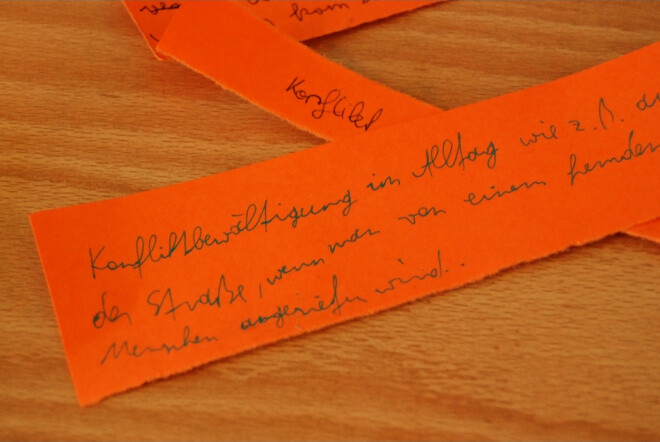 from
Konflikt
Konfliktbewältigung im Alltag wie z.B. au
der Straße, wenn man von einem fremden
Menschen angerufen wird.